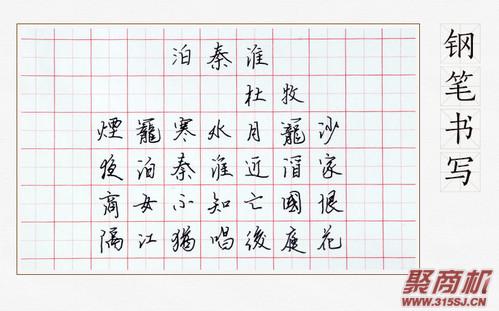 泊秦淮
杜牧
煙籠寒水月籠沙
夜泊秦淮近酒家
商女不知亡國恨
隔江猶唱後庭花
钢笔书写
聚商机
WWW.315SJ.CN